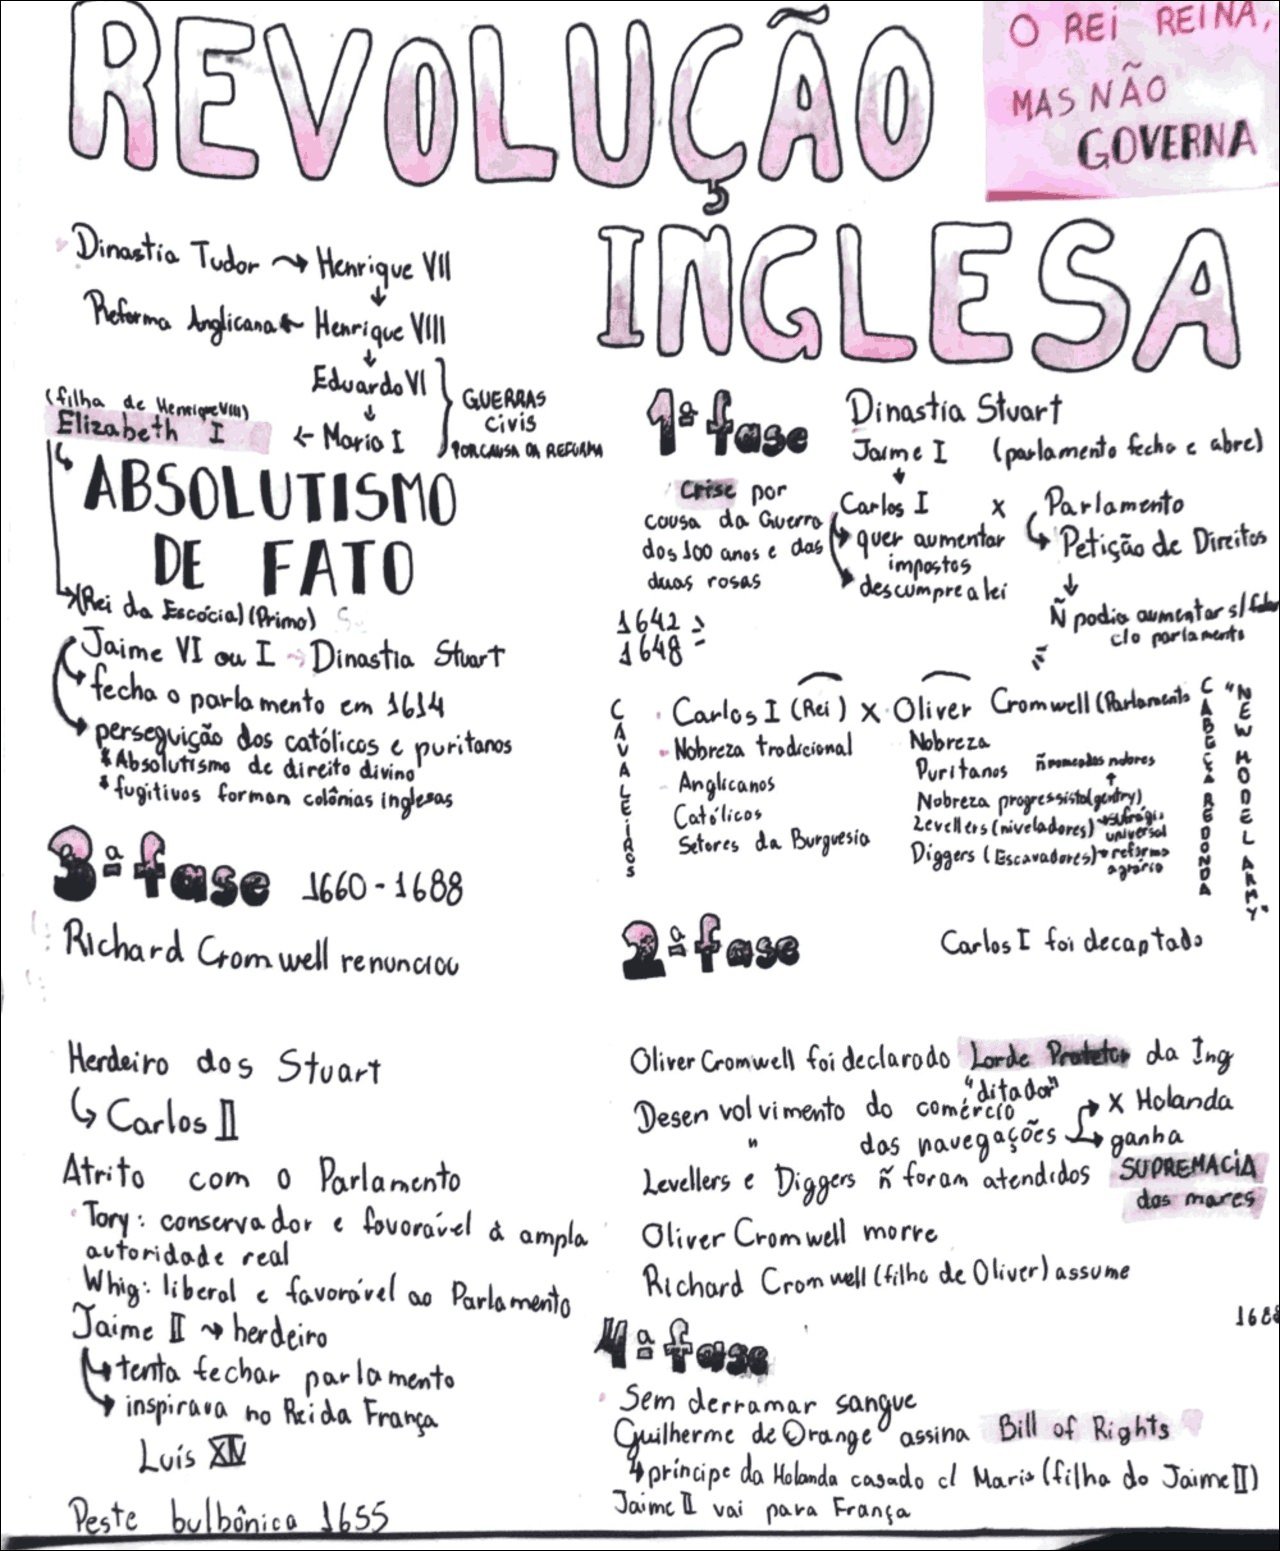 REVOLUÇÃO
INGLESA
O REI REINA,
MAS NÃO
GOVERNA
Dinastia Tudor → Henrique VII
Reforma Anglicana ← Henrique VIII
Eduardo VI
(filha de Henrique VIII)
Elizabeth I ← Maria I
GUERRAS
Civis
POR CAUSA DA REFORMA
ABSOLUTISMO
DE FATO
(Rei da Escócia) (Primo)
Jaime VI ou I → Dinastia Stuart
fecha o parlamento em 1614
perseguição dos católicos e puritanos
* Absolutismo de direito divino
* fugitivos formam colônias inglesas
1ª fase
Dinastia Stuart
Jaime I (parlamento fecha e abre)
Crise por
causa da Guerra
dos 100 anos e das
duas rosas
Carlos I x Parlamento
quer aumentar
impostos
descumpre a lei
Petição de Direitos
Ñ podia aumentar s/ falar
c/o parlamento
1642
1648
CAVALEIROS
Carlos I (Rei) x Oliver Cromwell (Parlamento
Nobreza tradicional
Anglicanos
Católicos
Setores da Burguesia
Nobreza
Puritanos
Nobreza progressista (gentry)
Levellers (niveladores) → sufrágio
universal
Diggers (Escavadores) → reforma
agrária
CABEÇA REDONDA
"NEW MODEL ARMY"
2ª fase
Carlos I foi decaptado
Oliver Cromwell foi declarado Lorde Protetor da Ing
"ditador"
Desenvolvimento do comércio
" das navegações
x Holanda
ganha
SUPREMACIA
dos mares
Levellers e Diggers ñ foram atendidos
Oliver Cromwell morre
Richard Cromwell (filho de Oliver) assume
3ª fase 1660 - 1688
Richard Cromwell renunciou
Herdeiro dos Stuart
Carlos II
Atrito com o Parlamento
Tory: conservador e favorável à ampla
autoridade real
Whig: liberal e favorável ao Parlamento
Jaime II → herdeiro
tenta fechar parlamento
inspirava no Rei da França
Luís XIV
Peste bulbônica 1655
4ª fase
1688
Sem derramar sangue
Guilherme de Orange assina Bill of Rights
príncipe da Holanda casado c/ Maria (filha do Jaime II)
Jaime II vai para França